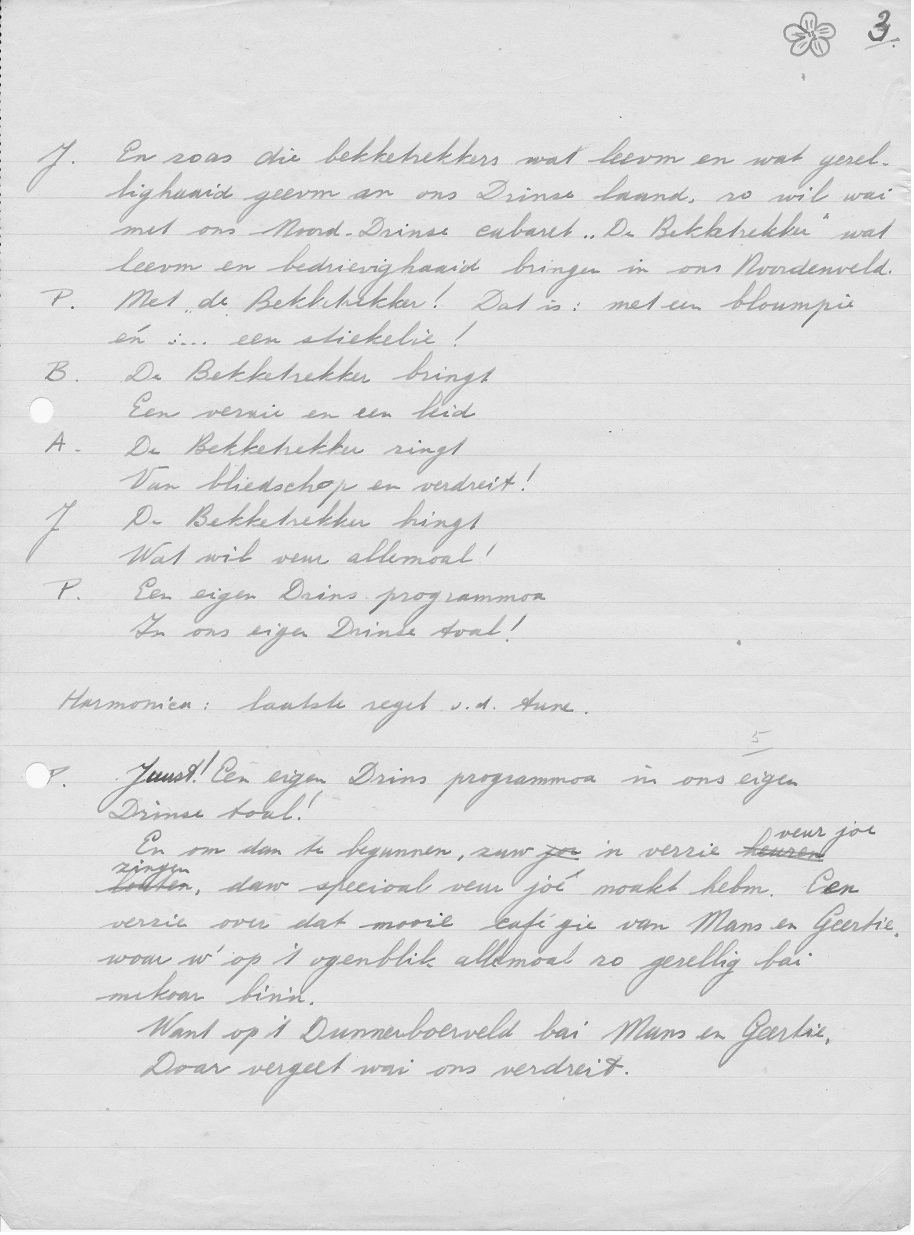 3.
J. En zoas die bekketrekkers wat leevm en wat gezel-
lighaaid geevm an ons Drinse laand, zo wil wai
met ons Noord-Drinse cabaret „De Bekketrekker" wat
leevm en bedrievighaaid bringen in ons Noordenveld.
P. Met „de Bekketrekker! Dat is: met een bloumpie
én :... een stiekelie!
B. De Bekketrekker bringt
Een verzie en een leid
A. De Bekketrekker zingt
Van bliedschop en verdreit!
J De Bekketrekker bringt
Wat wil veur allemoal!
P. Een eigen Drins programmoa
In ons eigen Drinse toal!
Harmonica: laatste regel v.d. tune.
5
P. Juust! Een eigen Drins programmoa in ons eigen
Drinse toal!
veur joe
En om dan te begunnen, zuw joe in verzie heuren
zingen
louten, daw specioal veur joé moakt hebm. Een
verzie over dat mooie café gie van Mans en Geertie,
woar w' op 't ogenblik allemoal zo gezellig bai
mekoar binn.
Want op 't Dunnerboerveld bai Mans en Geertie,
Doar vergeet wai ons verdreit.